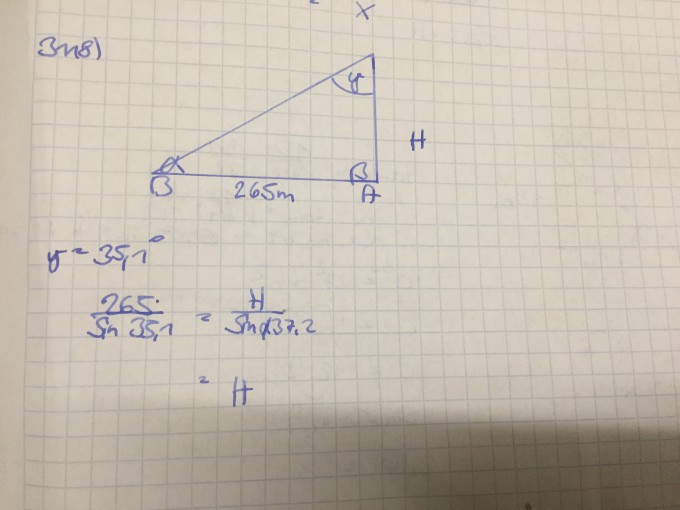 X
3n8)
γ
H
α
β
B
265m
A
γ = 35,1°
265 / Sin 35,1 = H / Sin α 37,2
= H